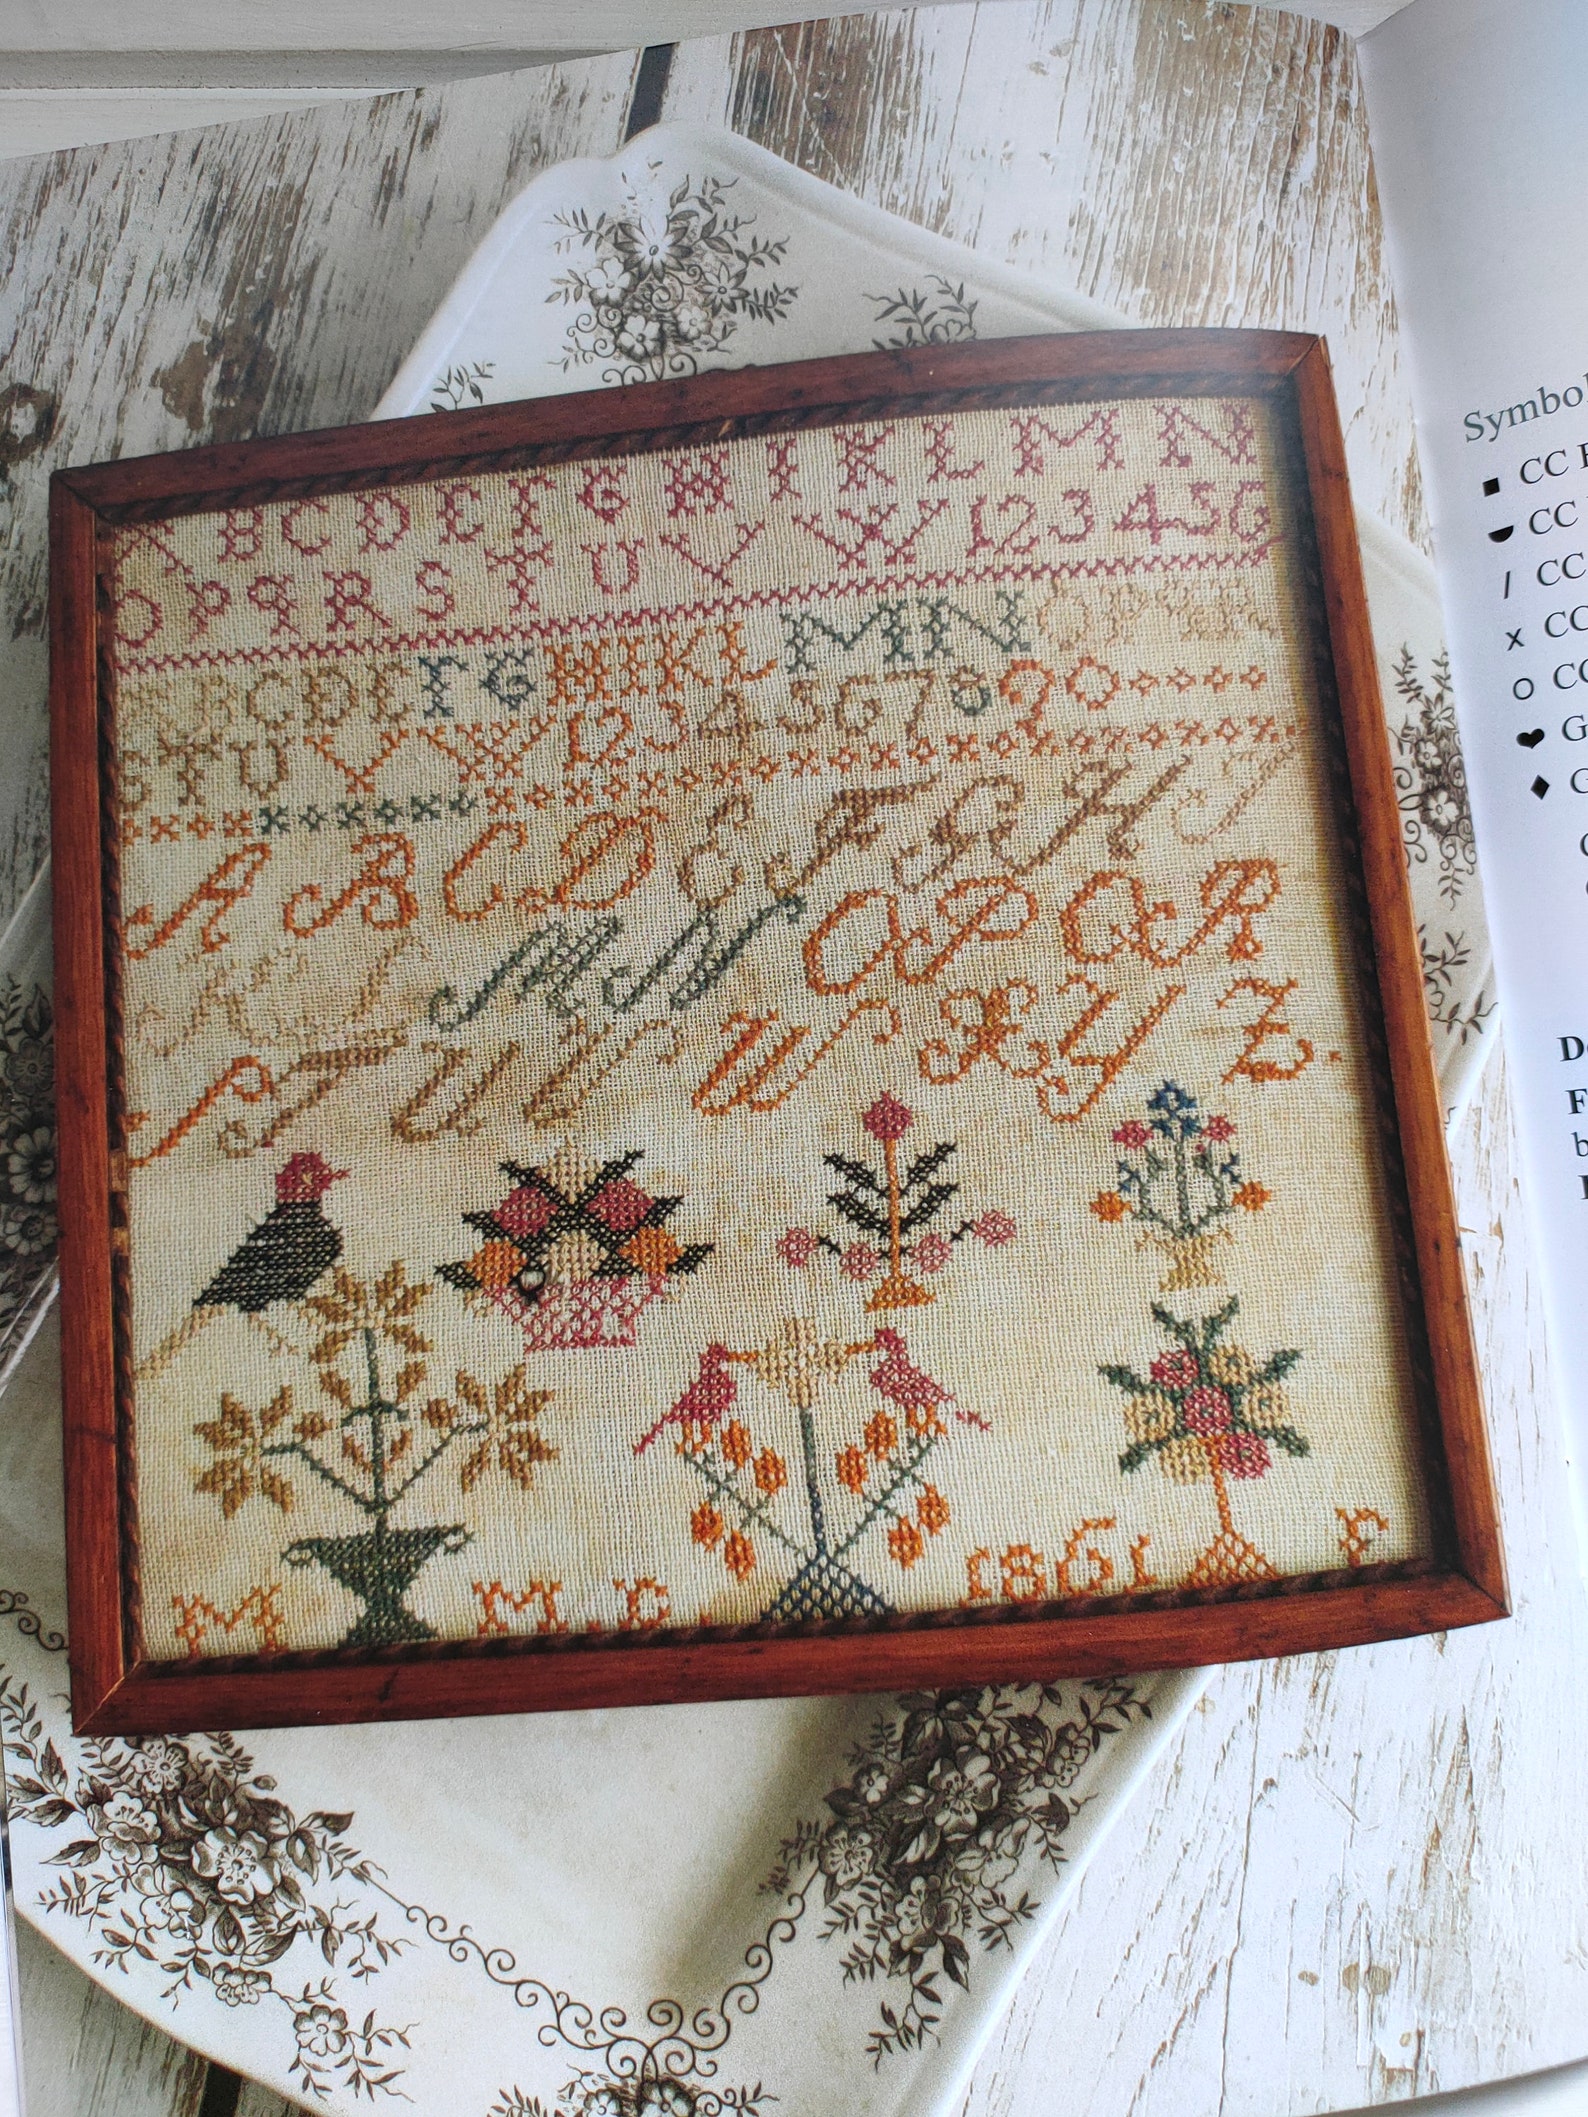 A B C D E F G H I K L M N
O P Q R S T U V W 1 2 3 4 5 6
A B C D E F G H I K L M N O P Q R
S T U V W 1 2 3 4 5 6 7 8 9 0
A B C D E F G H I
K L M N O P Q R
S T U V W X Y Z
M M.E. 1861 F
Symbol
CC
CC
CC
CC
CC
G
G